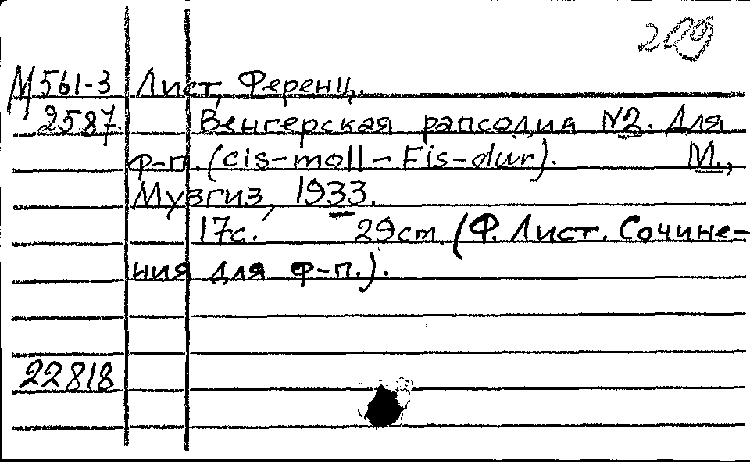 209
М561-3 Лист, Ференц.
2587 Венгерская рапсодия №2. Для
ф-п. (cis-moll - Fis-dur). М.,
Музгиз, 1933.
17с. 29cm (Ф. Лист. Сочине-
ния для ф-п.).
22818